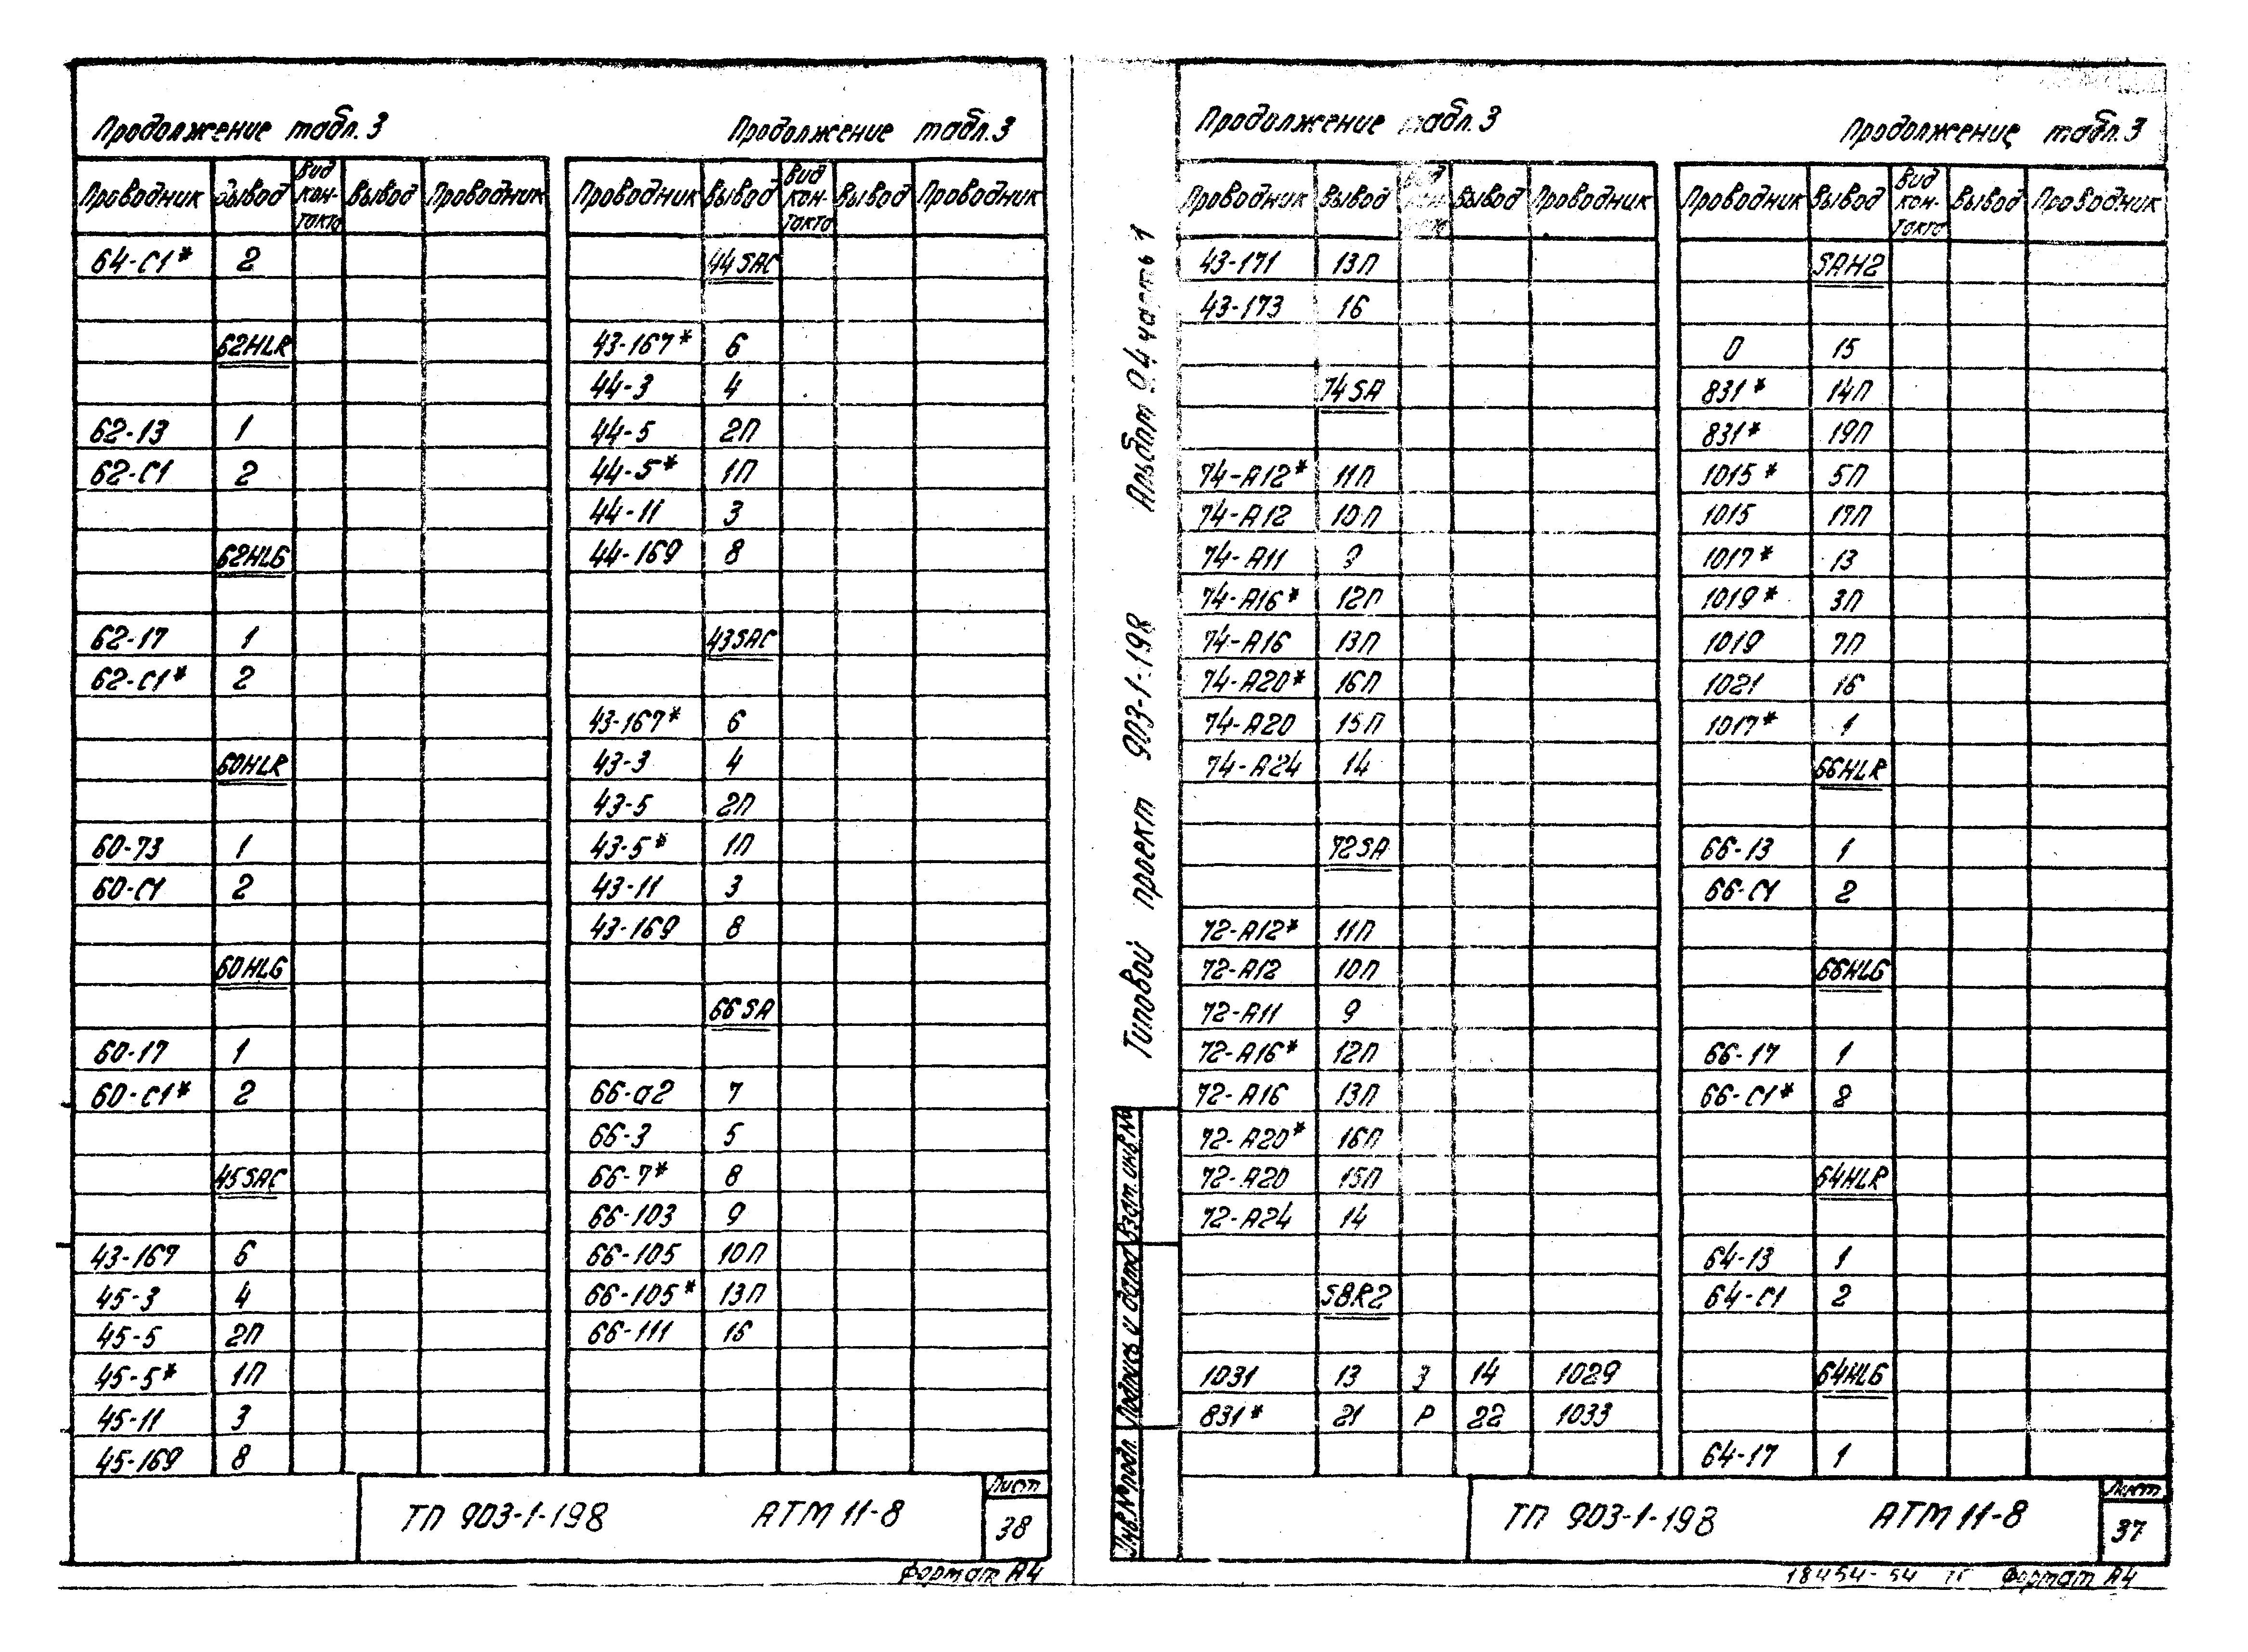 Продолжение табл.3
Проводник Вывод Вид кон- такта Вывод Проводник
64-С1* 2
62HLR
62-13 1
62-С1 2
62HLG
62-17 1
62-С1* 2
60HLR
60-73 1
60-С1 2
60HLG
60-17 1
60-С1* 2
45SAC
43-167 6
45-3 4
45-5 2П
45-5* 1П
45-11 3
45-169 8
Продолжение табл.3
Проводник Вывод Вид кон- такта Вывод Проводник
44SAC
43-167* 6
44-3 4
44-5 2П
44-5* 1П
44-11 3
44-169 8
43SAC
43-167* 6
43-3 4
43-5 2П
43-5* 1П
43-11 3
43-169 8
66SA
66-а2 7
66-3 5
66-7* 8
66-103 9
66-105 10П
66-105* 13П
66-111 16
ТП 903-1-198 АТМ 11-8
Лист
38
Формат А4
Типовой проект 903-1-198 Альбом 9.4 часть 1
Взам. инв.№
Подпись и дата
Инв.№подл.
Продолжение табл.3
Проводник Вывод Вывод Проводник
43-171 13П
43-173 16
74SA
74-А12* 11П
74-А12 10П
74-А11 9
74-А16* 12П
74-А16 13П
74-А20* 16П
74-А20 15П
74-А24 14
72SA
72-А12* 11П
72-А12 10П
72-А11 9
72-А16* 12П
72-А16 13П
72-А20* 16П
72-А20 15П
72-А24 14
SBR2
1031 13 З 14 1029
831* 21 Р 22 1033
Продолжение табл.3
Проводник Вывод Вид кон- такта Вывод Проводник
SAH2
0 15
831* 14П
831* 19П
1015* 5П
1015 17П
1017* 13
1019* 3П
1019 7П
1021 16
1017* 1
66HLR
66-13 1
66-С1 2
66HLG
66-17 1
66-С1* 8
64HLR
64-13 1
64-С1 2
64HLG
64-17 1
ТП 903-1-198 АТМ 11-8
Лист
37
18454-54 Формат А4